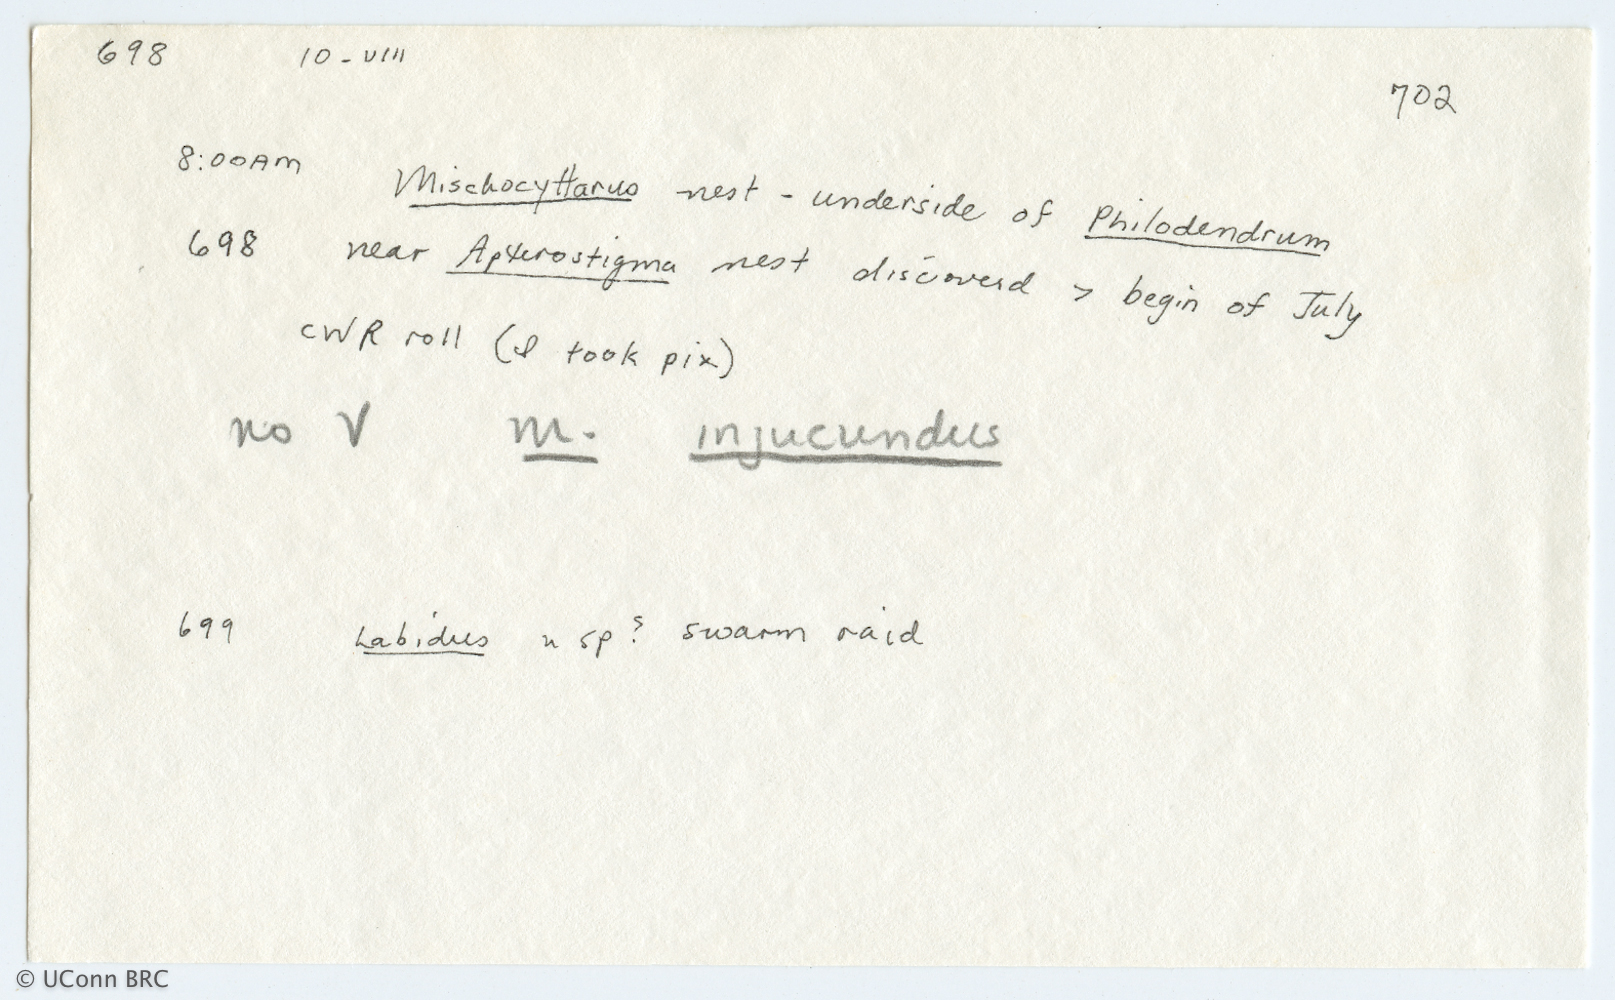 698 10-VIII
702
8:00AM
Mischocyttarus nest - underside of Philodendrum
698 near Apterostigma nest discoverd > begin of July
CWR roll (I took pix)
no V M. injucundus
699 Labidus n sp? swarm raid
© UConn BRC